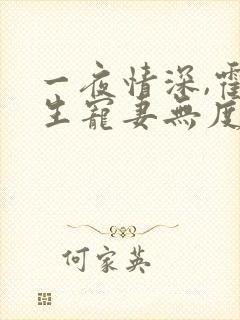 一夜情深,
生寵妻無度
何家英